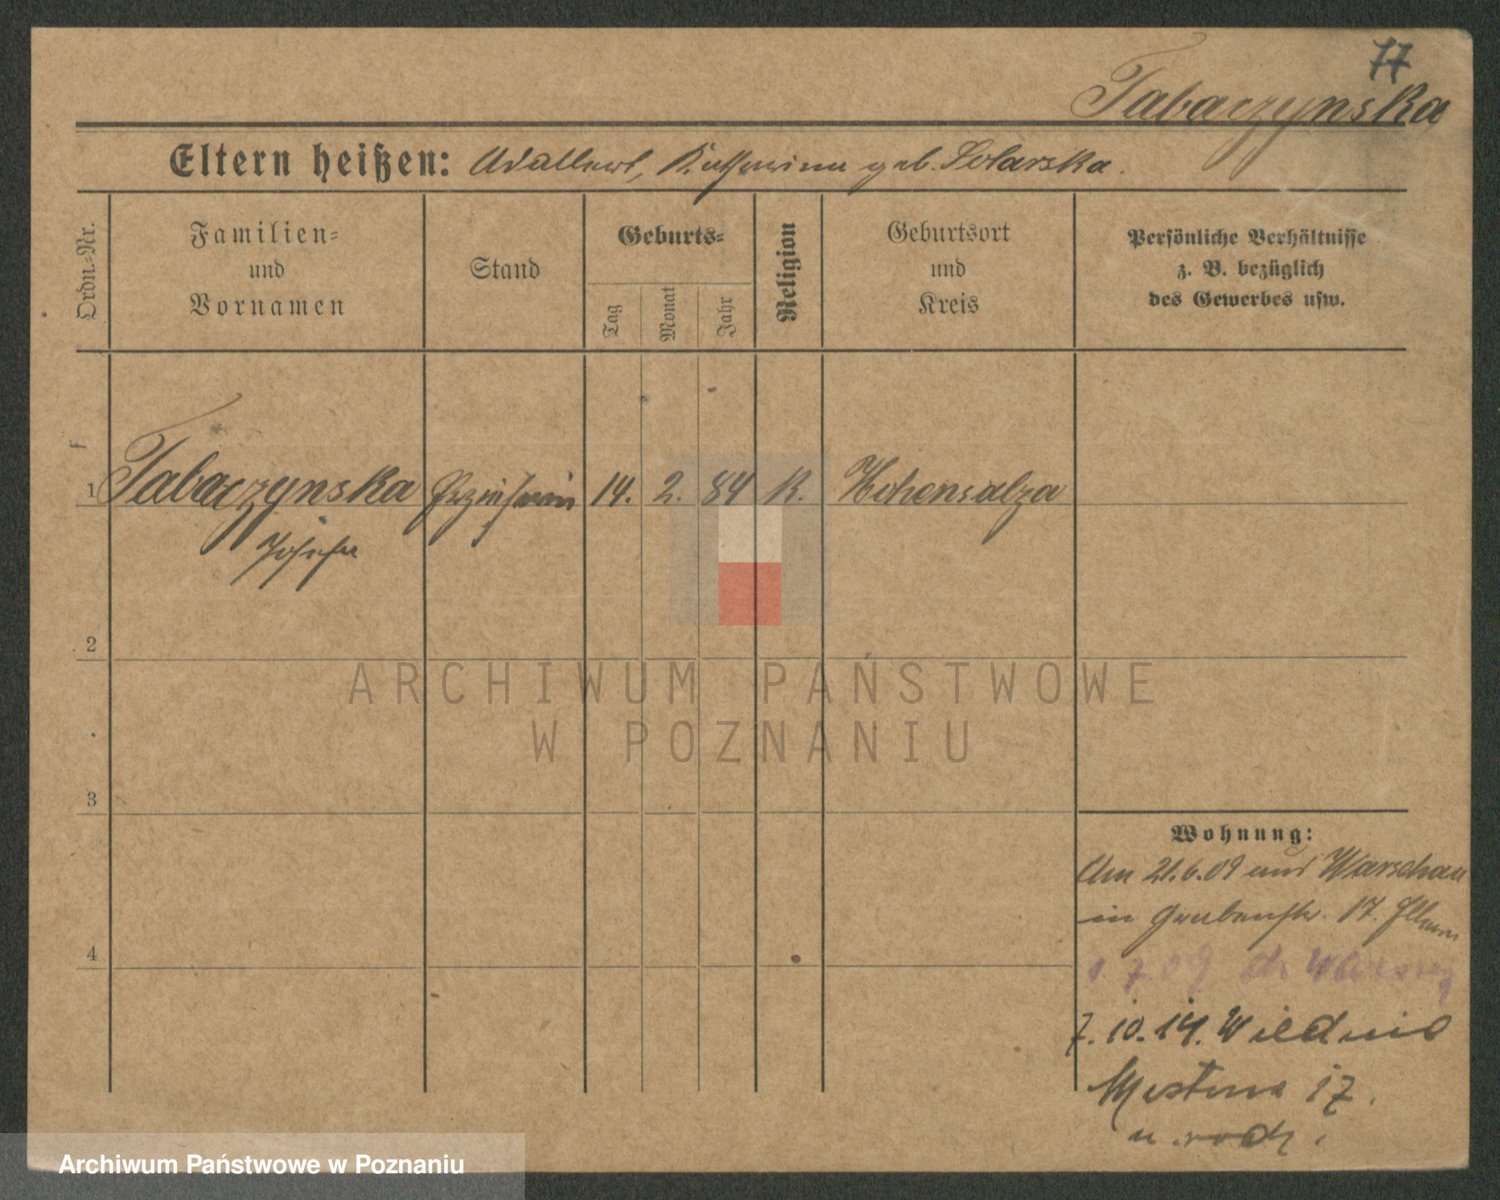 77
Tabaczynska
Eltern heißen: Adalbert, Katharina geb. Solarska.
Ordn.-Nr.
Familien-
und
Vornamen
Stand
Geburts-
Tag
Monat
Jahr
Religion
Geburtsort
und
Kreis
Persönliche Verhältnisse
z. B. bezüglich
des Gewerbes usw.
1 Tabaczynska Erzieherin 14. 2. 84 K. Hohensalza
Josefa
2
3
4
ARCHIWUM PAŃSTWOWE
W POZNANIU
Wohnung:
Am 21.6.09 aus Warschau
in Grabenstr. 17. Eltern
1.7.09
7.10.19. Wiednia
17.
u. rodz.
Archiwum Państwowe w Poznaniu